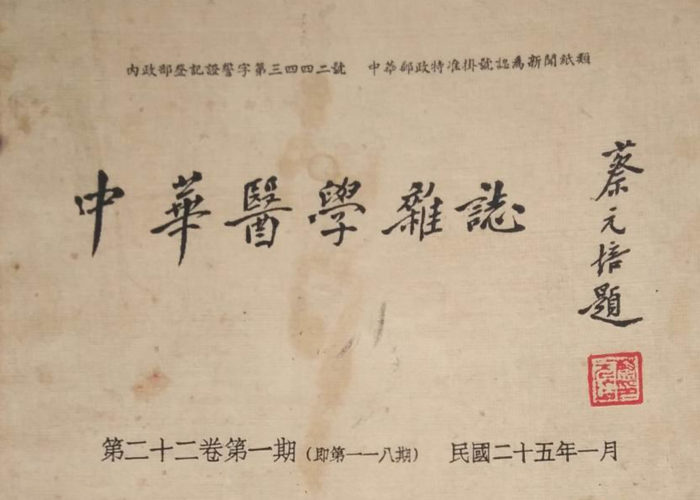 內政部登記證警字第三四四二號　中華郵政特准掛號認為新聞紙類
中華醫學雜誌
蔡元培題
第二十二卷第一期（即第一一八期）　民國二十五年一月